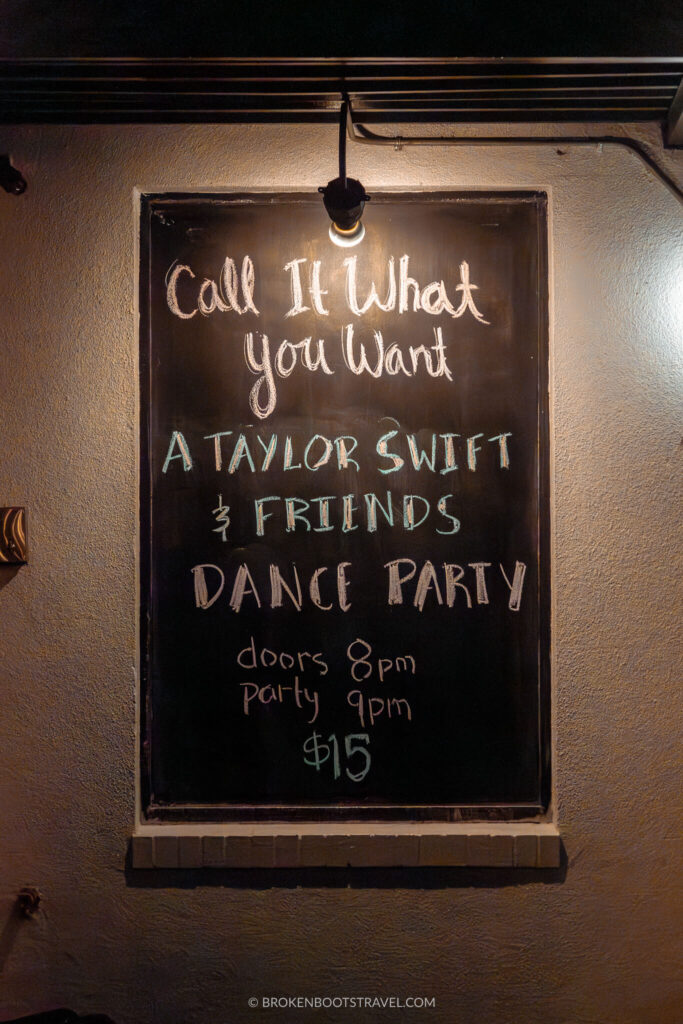 Call It What
you Want
A TAYLOR SWIFT
& FRIENDS
DANCE PARTY
doors 8pm
party 9pm
$15
© BROKENBOOTSTRAVEL.COM